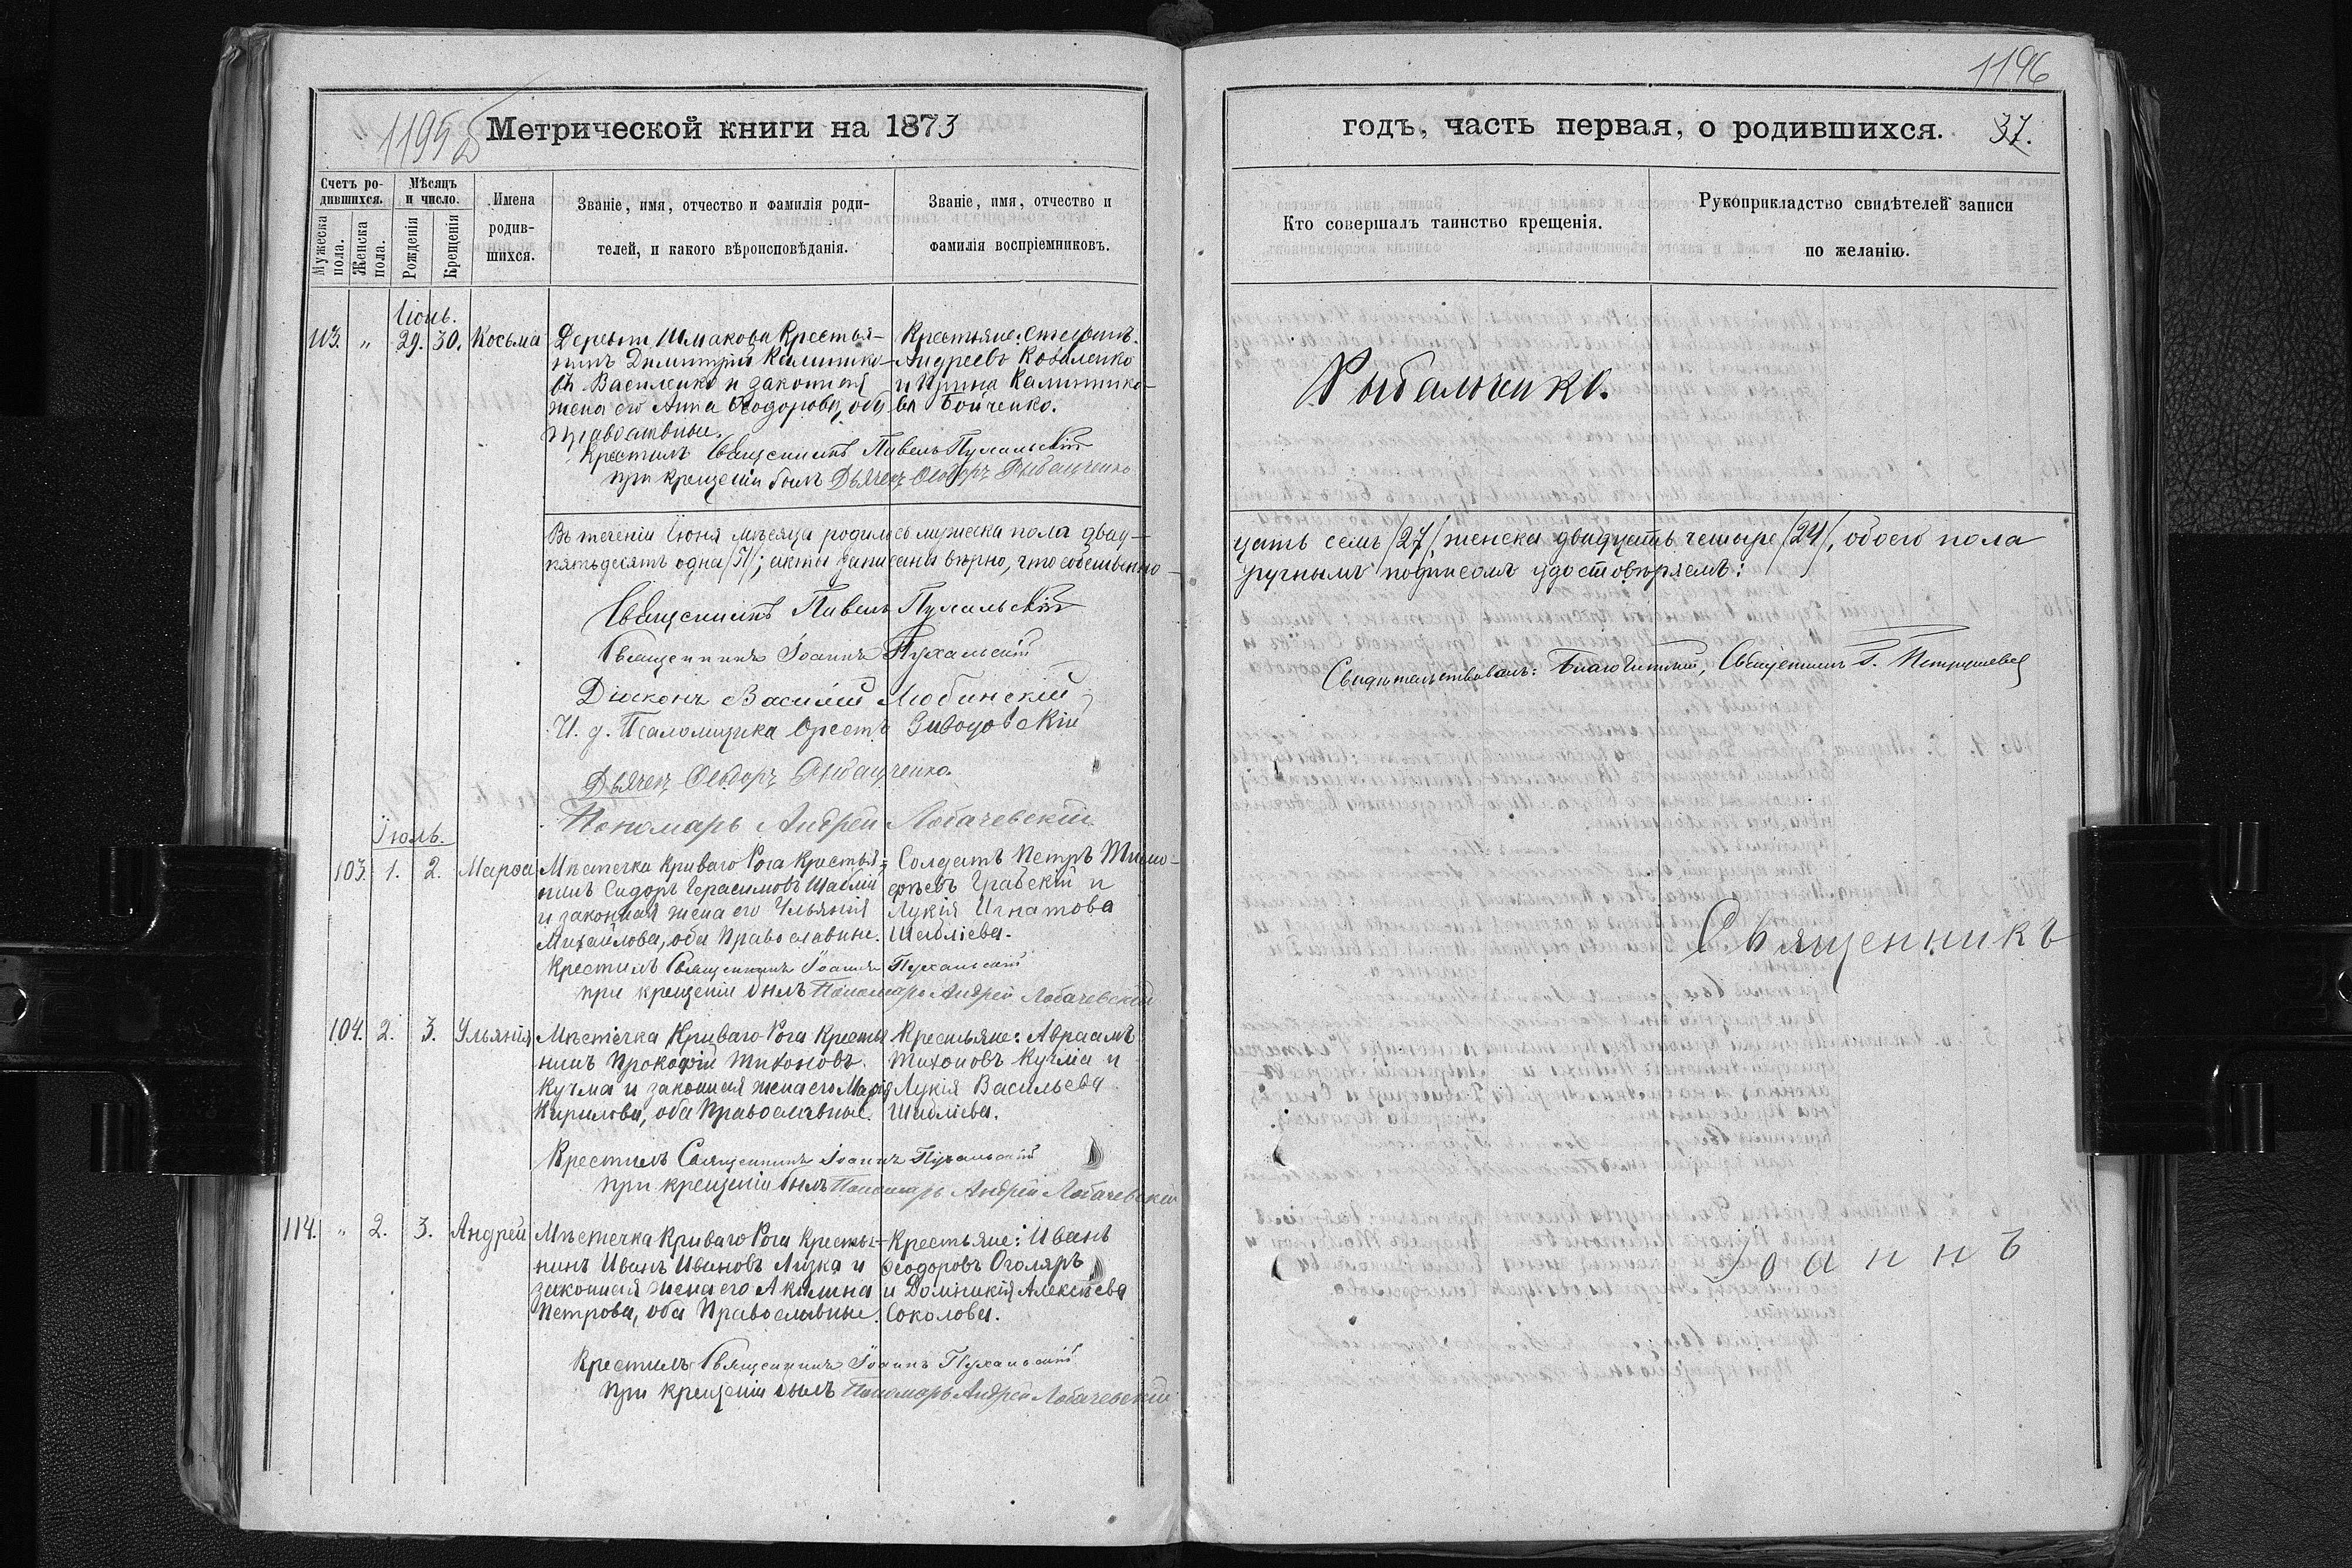 1196
1195
Метрической книги на 1873
годъ, часть первая, о родившихся. 37.
Счетъ родившихся.
Мужеска пола.
Женска пола.
Мѣсяцъ и число.
Рожденія
Крещенія
Имена родившихся.
Званіе, имя, отчество и фамилія родителей, и какого вѣроисповѣданія.
Званіе, имя, отчество и фамилія воспріемниковъ.
Кто совершалъ таинство крещенія.
Рукоприкладство свидѣтелей записи по желанію.
Іюнь.
113. " 29. 30. Косьма
Деревни Шмакова Крестья-
нинъ Димитрій Калинико-
въ Василенко и законная
жена его Анна Ѳеодорова, оба
православные.
Крестьяне: Стефанъ
Андреевъ Коваленко
и Ирина Калинико-
ва Бойченко.
Крестилъ Священникъ Павелъ Пухальскій
при крещеніи былъ Дьячекъ Ѳеодоръ Рыбальченко
Рыбальченко.
Въ теченіи Іюня мѣсяца родилось мужеска пола двад-
цать семь /27/, женска двадцать четыре /24/, обоего пола
пятьдесятъ одна /51/; акты записаны вѣрно, что собственно-
ручнымъ подписомъ удостовѣряемъ:
Священникъ Павелъ Пухальскій
Священникъ Іоаннъ Пухальскій
Діаконъ Василій Любинскій
И. д. Псаломщика Орестъ
Дьячекъ Ѳеодоръ Рыбальченко.
Пономарь Андрей Лобачевскій
Свидѣтельствовалъ: Благочинный, Священникъ
Іюль.
103. 1. 2. Марѳа
Мѣстечка Криваго Рога Крестья-
нинъ Сидоръ Герасимовъ Шаблій
и законная жена его Ульянія
Михайлова, оба Православные.
Солдатъ Петръ Тимо-
фѣевъ Грабскій и
Лукія Игнатова
Шабліева.
Крестилъ Священникъ Іоаннъ Пухальскій
при крещеніи былъ Пономарь Андрей Лобачевскій
Священникъ
104. 2. 3. Ульянія
Мѣстечка Криваго Рога Крестья
нинъ Прокофій Тихоновъ
Кучма и законная жена его Марія
Кирилова, оба Православные.
Крестьяне: Авраамъ
Тихоновъ Кучма и
Лукія Васильева
Шабліева.
Крестилъ Священникъ Іоаннъ Пухальскій
при крещеніи былъ Пономарь Андрей Лобачевскій
114. " 2. 3. Андрей
Мѣстечка Криваго Рога Крестья-
нинъ Иванъ Ивановъ Лузка и
законная жена его Акилина
Петрова, оба Православные.
Крестьяне: Иванъ
Ѳеодоровъ Оголяръ
и Домникія Алексѣева
Соколова.
Іоаннъ
Крестилъ Священникъ Іоаннъ Пухальскій
при крещеніи былъ Пономарь Андрей Лобачевскій